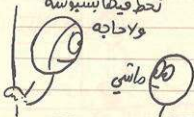 نحط فيها بسبوسة
ولا حاجه
ماشي
ليه